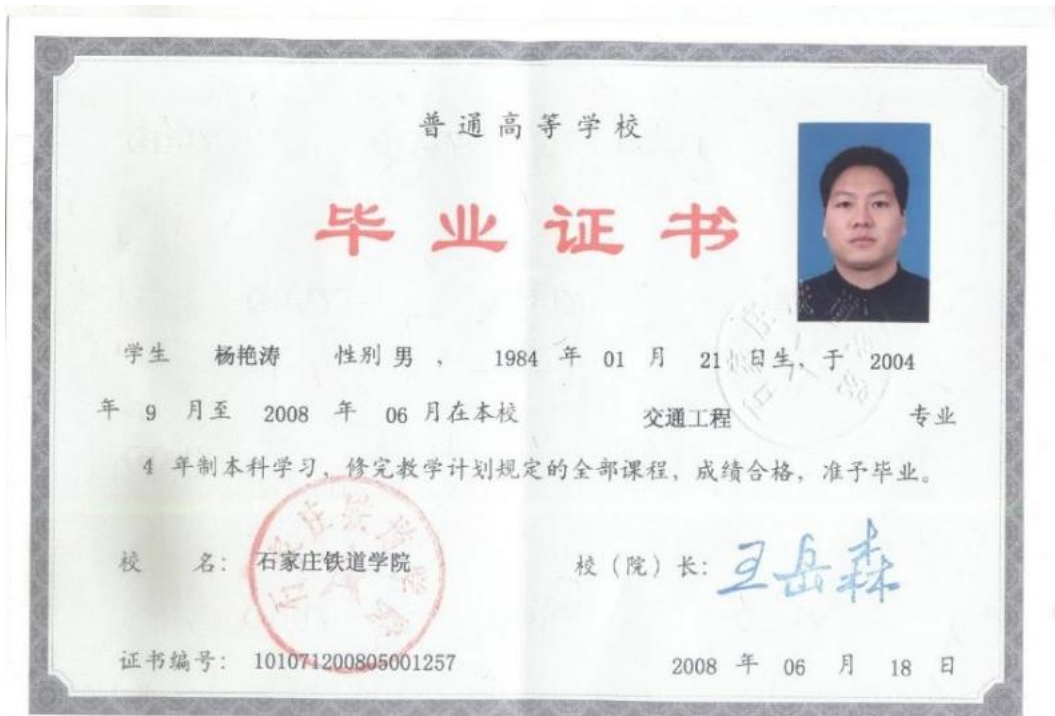 普通高等学校
毕业证书
学生 杨艳涛 性别 男 , 1984 年 01 月 21 日生, 于 2004
年 9 月至 2008 年 06 月在本校 交通工程 专业
4 年制本科学习, 修完教学计划规定的全部课程, 成绩合格, 准予毕业。
校 名: 石家庄铁道学院 校 (院) 长: 王岳森
石家庄铁道学院
证书编号: 101071200805001257 2008 年 06 月 18 日